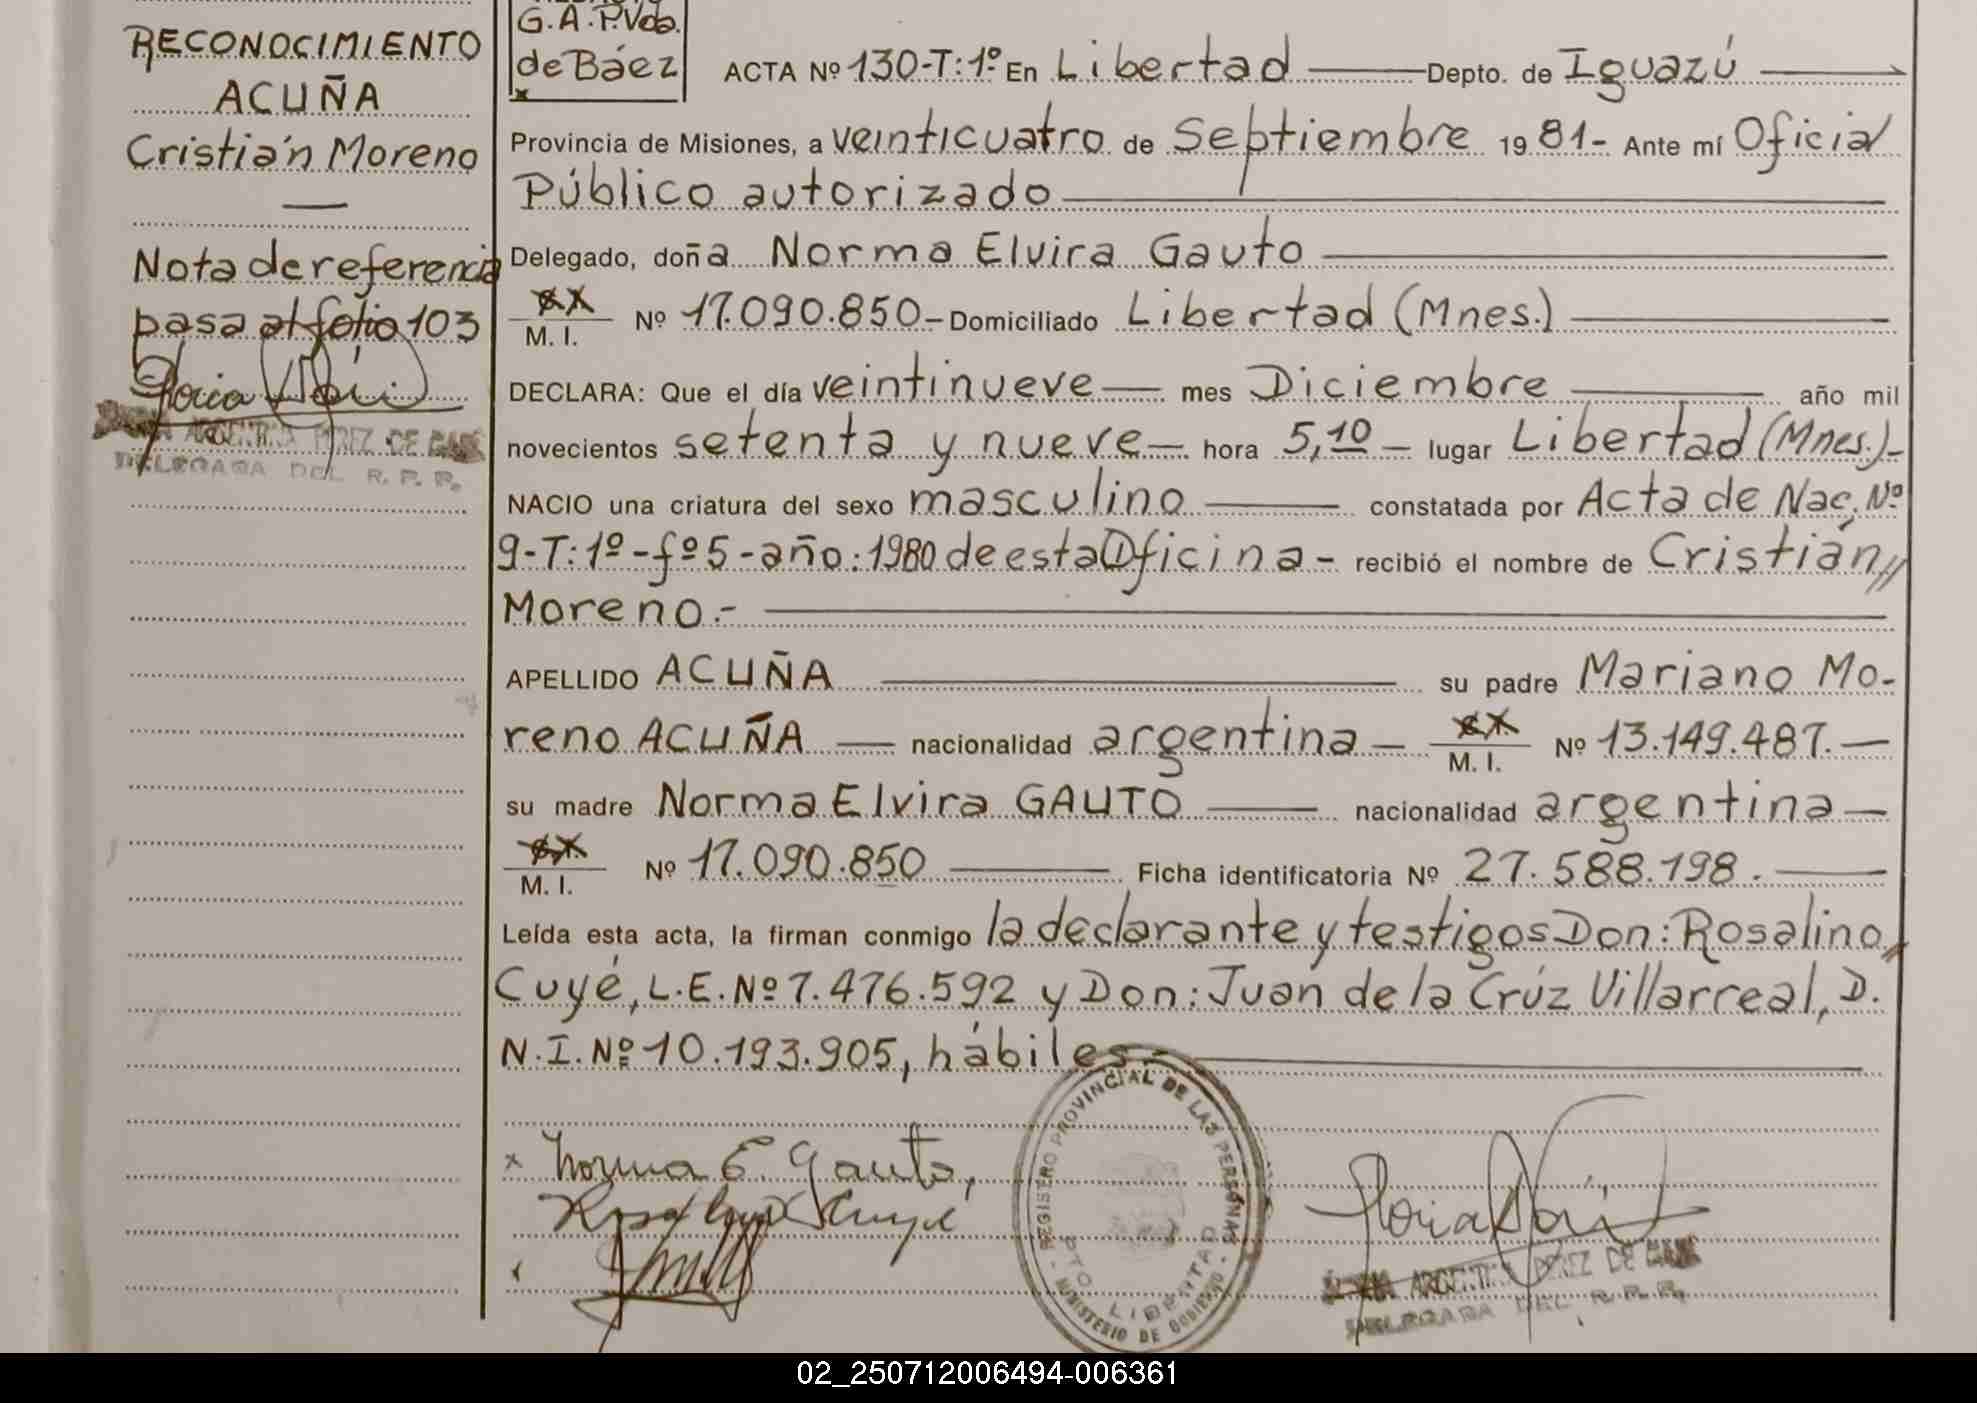 RECONOCIMIENTO
ACUÑA
Cristián Moreno
Nota de referencia
pasa al folio 103
ARGENTINA PEREZ DE
DELEGADA DEL R. P. P.
G. A. P. Vda.
de Báez
ACTA Nº 130-T:1º En Libertad Depto. de Iguazú
Provincia de Misiones, a veinticuatro de Septiembre 1981- Ante mí Oficial
Público autorizado
Delegado, doña Norma Elvira Gauto
M. I. Nº 17.090.850- Domiciliado Libertad (Mnes.)
DECLARA: Que el día veintinueve mes Diciembre año mil
novecientos setenta y nueve hora 5,10 lugar Libertad (Mnes.)-
NACIO una criatura del sexo masculino constatada por Acta de Nac. Nº
9-T:1º-fº5-año:1980 de esta Oficina- recibió el nombre de Cristián//
Moreno.-
APELLIDO ACUÑA su padre Mariano Mo-
reno ACUÑA nacionalidad argentina M. I. Nº 13.149.487.
su madre Norma Elvira GAUTO nacionalidad argentina
M. I. Nº 17.090.850 Ficha identificatoria Nº 27.588.198.
Leída esta acta, la firman conmigo la declarante y testigos Don: Rosalino//
Cuyé, L.E.Nº 7.476.592 y Don: Juan de la Crúz Villarreal, D.
N.I.Nº 10.193.905, hábiles-
x Norma E. Gauto,
REGISTRO PROVINCIAL DE LAS PERSONAS
PTO LIBERTAD
- MINISTERIO DE GOBIERNO -
ARGENTINA PEREZ DE
DELEGADA DEL R. P. P.
02_250712006494-006361